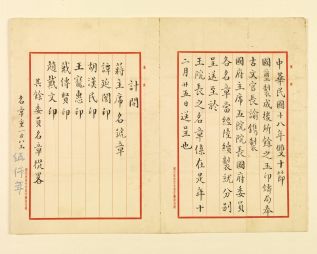 中華民國十八年雙十節
國璽製成後所餘之玉印鑄局奉
古文官長諭鐫製
國府主席五院院長國府委員
各名章當經陸續製就分別
呈送至於
王院長之名章係在是年十
二月廿五日送呈也
計開
蔣主席名號章
譚延闓印
胡漢民印
王寵惠印
戴傳賢印
趙戴文印
其餘委員名章從畧
名章重一百八公